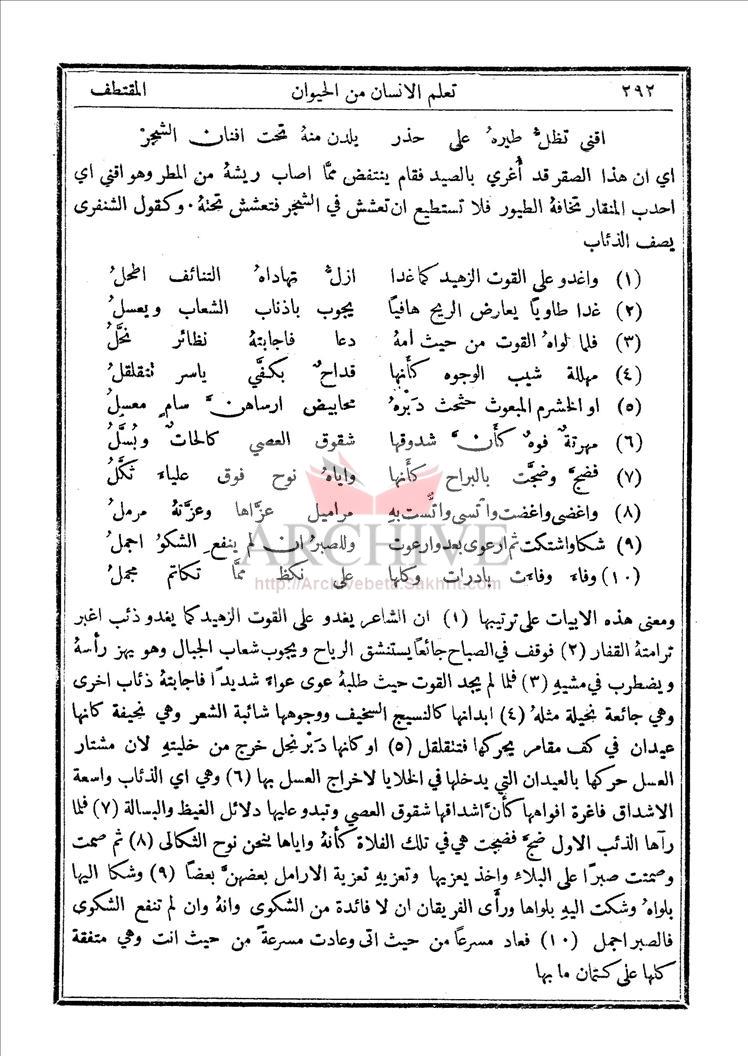 ٢٩٢ تعلم الانسان من الحيوان المقتطف
اقنى تظلُّ طيرهُ على حذر يلدن منهُ تحت افنان الشجرْ
اي ان هذا الصقر قد أُغري بالصيد فقام ينتفض ممَّا اصاب ريشهُ من المطر وهو اقنى اي
احدب المنقار تخافهُ الطيور فلا تستطيع ان تعشش في الشجر فتعشش تحتهُ . وكقول الشنفرى
يصف الذئاب
(١) واغدو على القوت الزهيد كما غدا ازلُّ تهاداهُ التنائف اطحلُ
(٢) غدا طاويًا يعارض الريح هافيًا يجوب باذناب الشعاب ويعسلُ
(٣) فلما لواهُ القوت من حيث امهُ دعا فاجابتهُ نظائر نحَّلُ
(٤) مهللة شيب الوجوه كأَنها قداحٌ بكفَّي ياسر تتقلقلُ
(٥) او الخشرم المبعوث حثحث دَبْرهُ محابيض ارساهنَّ سامٍ معسلُ
(٦) مهرتةٌ فوهٌ كأَنَّ شدوقها شقوق العصي كالحاتٌ وبُسَّلُ
(٧) فضجَّ وضجَّت بالبراح كأَنها واياهُ نوح فوق علياءَ ثكَّلُ
(٨) واغضى واغضت واتسى واتَّست بهِ مراميل عزَّاها وعزَّتهُ مرملُ
(٩) شكا واشتكت ثم ارعوى بعد وارعوت وللصبر ان لم ينفعِ الشكوُ اجملُ
(١٠) وفاءَ وفاءَت بادرات وكلها على نكظٍ ممَّا تكاتم مجملُ
ومعنى هذه الابيات على ترتيبها (١) ان الشاعر يغدو على القوت الزهيد كما يغدو ذئب اغبر
ترامتهُ القفار (٢) فوقف في الصباح جائعًا يستنشق الرياح ويجوب شعاب الجبال وهو يهز رأسهُ
ويضطرب في مشيهِ (٣) فلما لم يجد القوت حيث طلبهُ عوى عواءً شديدًا فاجابتهُ ذئاب اخرى
وهي جائعة نحيلة مثلهُ (٤) ابدانها كالنسيج السخيف ووجوهها شائبة الشعر وهي نحيفة كانها
عيدان في كف مقامر يحركها فتتقلقل (٥) او كانها دَبْر نحل خرج من خليتهِ لان مشتار
العسل حركها بالعيدان التي يدخلها في الخلايا لاخراج العسل بها (٦) وهي اي الذئاب واسعة
الاشداق فاغرة افواهها كأَنَّ اشداقها شقوق العصي وتبدو عليها دلائل الغيظ والبسالة (٧) فلما
رآها الذئب الاول ضجَّ فضجت هي في تلك الفلاة كأَنهُ واياها ينحن نوح الثكالى (٨) ثم صمت
وصمتت صبرًا على البلاء واخذ يعزيها وتعزيهِ تعزية الارامل بعضهنَّ بعضًا (٩) وشكا اليها
بلواهُ وشكت اليهِ بلواها ورأَى الفريقان ان لا فائدة من الشكوى وانهُ وان لم تنفع الشكوى
فالصبر اجمل (١٠) فعاد مسرعًا من حيث اتى وعادت مسرعةً من حيث اتت وهي متفقة
كلها على كتمان ما بها
ARCHIVE
http://Archivebeta.Sakhrit.com